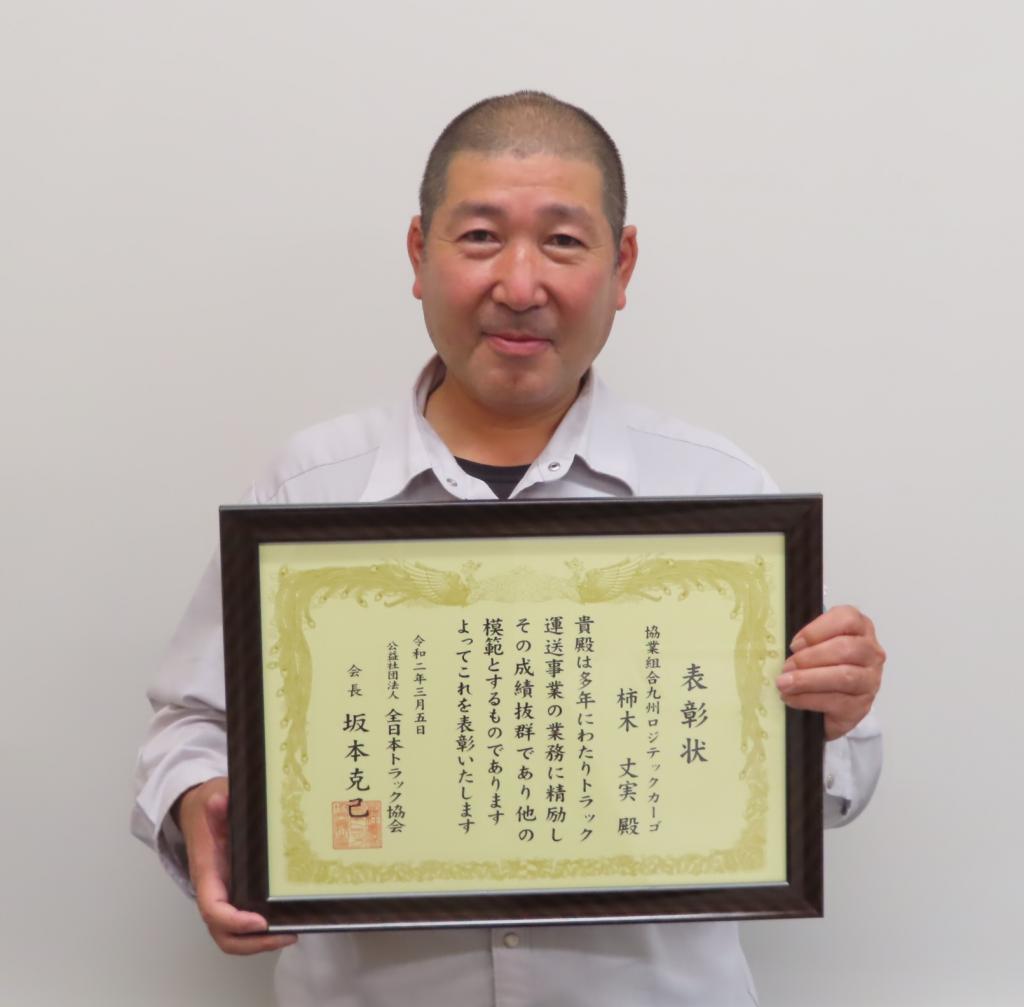 表彰状
協業組合九州ロジテックカーゴ
柿木 丈実 殿
貴殿は多年にわたりトラック
運送事業の業務に精励し
その成績抜群であり他の
模範とするものであります
よってこれを表彰いたします
令和二年三月五日
公益社団法人 全日本トラック協会
会長 坂本克己